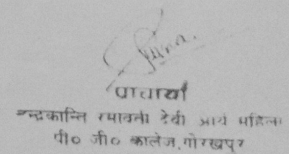 प्राचार्या
चन्द्रकान्ति रमावती देवी आर्य महिला
पी० जी० कालेज, गोरखपुर